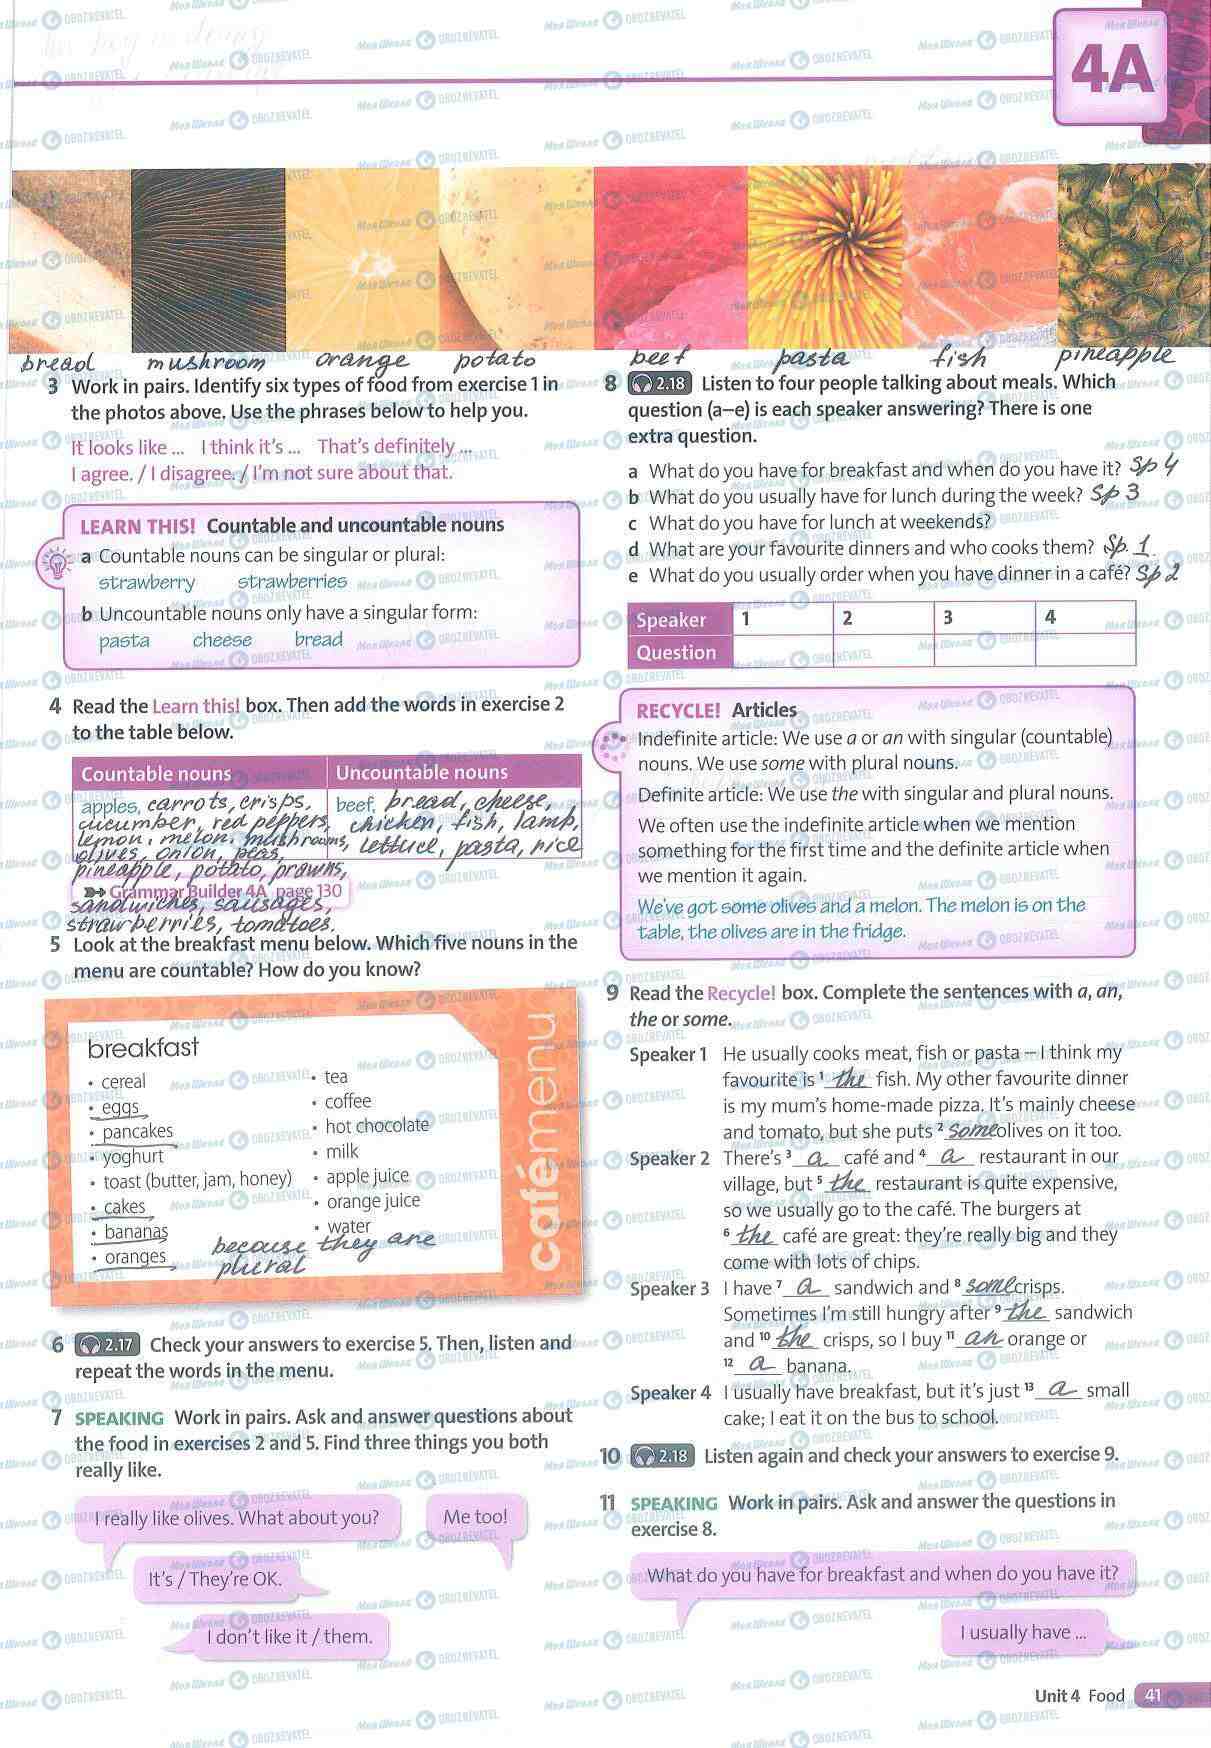 4A
bread mushroom orange potato beef pasta fish pineapple
3 Work in pairs. Identify six types of food from exercise 1 in
the photos above. Use the phrases below to help you.
It looks like ... I think it's ... That's definitely ...
I agree. / I disagree. / I'm not sure about that.
LEARN THIS! Countable and uncountable nouns
a Countable nouns can be singular or plural:
strawberry strawberries
b Uncountable nouns only have a singular form:
pasta cheese bread
4 Read the Learn this! box. Then add the words in exercise 2
to the table below.
Countable nouns Uncountable nouns
apples, carrots, crisps,
cucumber, red peppers,
lemon, melon, mushrooms,
olives, onion, peas,
pineapple, potato, prawns,
sandwiches, sausages,
strawberries, tomatoes.
beef, bread, cheese,
chicken, fish, lamp,
lettuce, pasta, rice
Grammar Builder 4A page 130
5 Look at the breakfast menu below. Which five nouns in the
menu are countable? How do you know?
breakfast
• cereal
• eggs
• pancakes
• yoghurt
• toast (butter, jam, honey)
• cakes
• bananas
• oranges
• tea
• coffee
• hot chocolate
• milk
• apple juice
• orange juice
• water
because they are
plural
cafémenu
6 2.17 Check your answers to exercise 5. Then, listen and
repeat the words in the menu.
7 SPEAKING Work in pairs. Ask and answer questions about
the food in exercises 2 and 5. Find three things you both
really like.
I really like olives. What about you?
Me too!
It's / They're OK.
I don't like it / them.
8 2.18 Listen to four people talking about meals. Which
question (a–e) is each speaker answering? There is one
extra question.
a What do you have for breakfast and when do you have it? Sp 4
b What do you usually have for lunch during the week? Sp 3
c What do you have for lunch at weekends?
d What are your favourite dinners and who cooks them? Sp. 1.
e What do you usually order when you have dinner in a café? Sp 2
Speaker 1 2 3 4
Question
RECYCLE! Articles
Indefinite article: We use a or an with singular (countable)
nouns. We use some with plural nouns.
Definite article: We use the with singular and plural nouns.
We often use the indefinite article when we mention
something for the first time and the definite article when
we mention it again.
We've got some olives and a melon. The melon is on the
table, the olives are in the fridge.
9 Read the Recycle! box. Complete the sentences with a, an,
the or some.
Speaker 1 He usually cooks meat, fish or pasta – I think my
favourite is 1 the fish. My other favourite dinner
is my mum's home-made pizza. It's mainly cheese
and tomato, but she puts 2 some olives on it too.
Speaker 2 There's 3 a café and 4 a restaurant in our
village, but 5 the restaurant is quite expensive,
so we usually go to the café. The burgers at
6 the café are great: they're really big and they
come with lots of chips.
Speaker 3 I have 7 a sandwich and 8 some crisps.
Sometimes I'm still hungry after 9 the sandwich
and 10 the crisps, so I buy 11 an orange or
12 a banana.
Speaker 4 I usually have breakfast, but it's just 13 a small
cake; I eat it on the bus to school.
10 2.18 Listen again and check your answers to exercise 9.
11 SPEAKING Work in pairs. Ask and answer the questions in
exercise 8.
What do you have for breakfast and when do you have it?
I usually have ...
Unit 4 Food 41
Моя Школа OBOZREVATEL